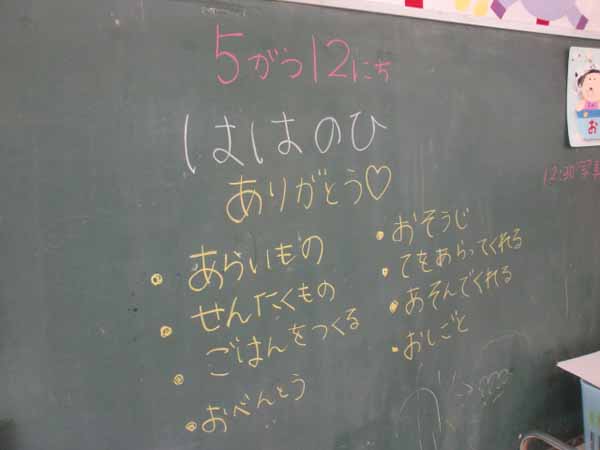 5がつ12にち
ははのひ
ありがとう♡
・あらいもの
・せんたくもの
・ごはんをつくる
・おべんとう
・おそうじ
・てをあらってくれる
・あそんでくれる
・おしごと
12:30
お